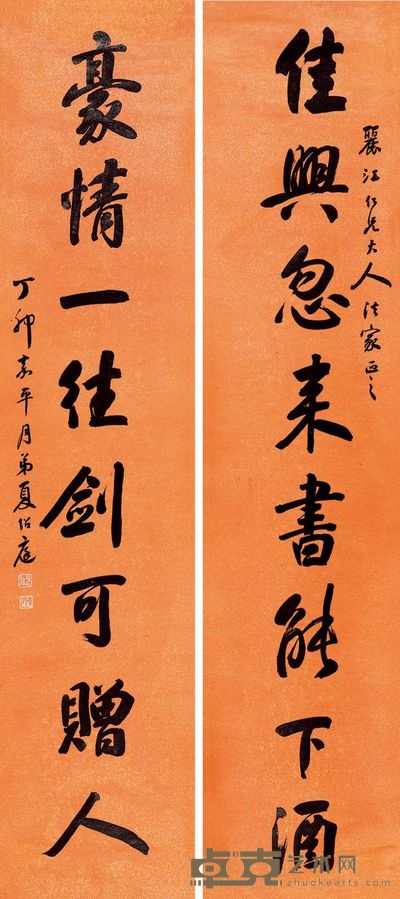 佳興忽来書能下酒
麗江仁兄大人法家正之
豪情一往劍可贈人
丁卯嘉平月弟夏紹庭
卓克艺术网
zhuokearts.com